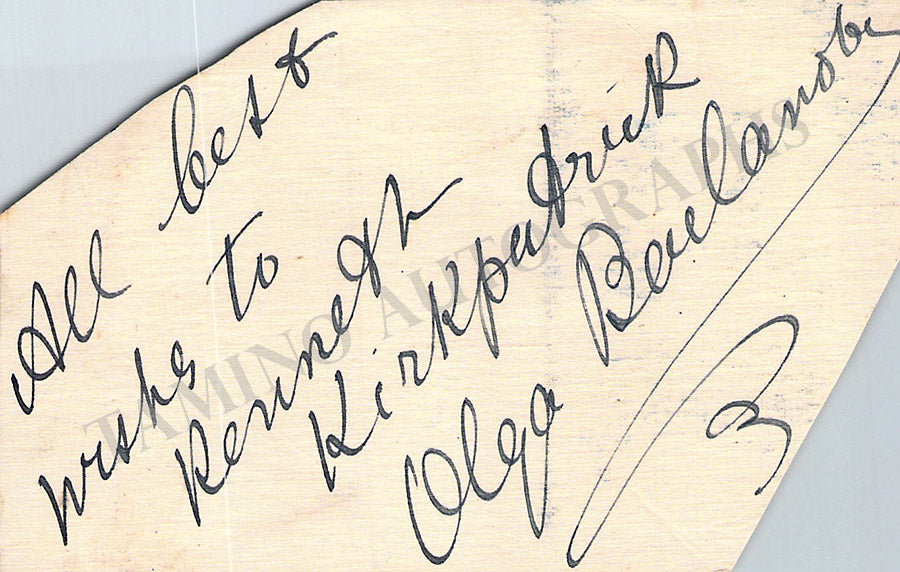 All best
wishs to
Kenneth
Kirkpatrick
Olga Baclanova
TAMINO AUTOGRAPHS